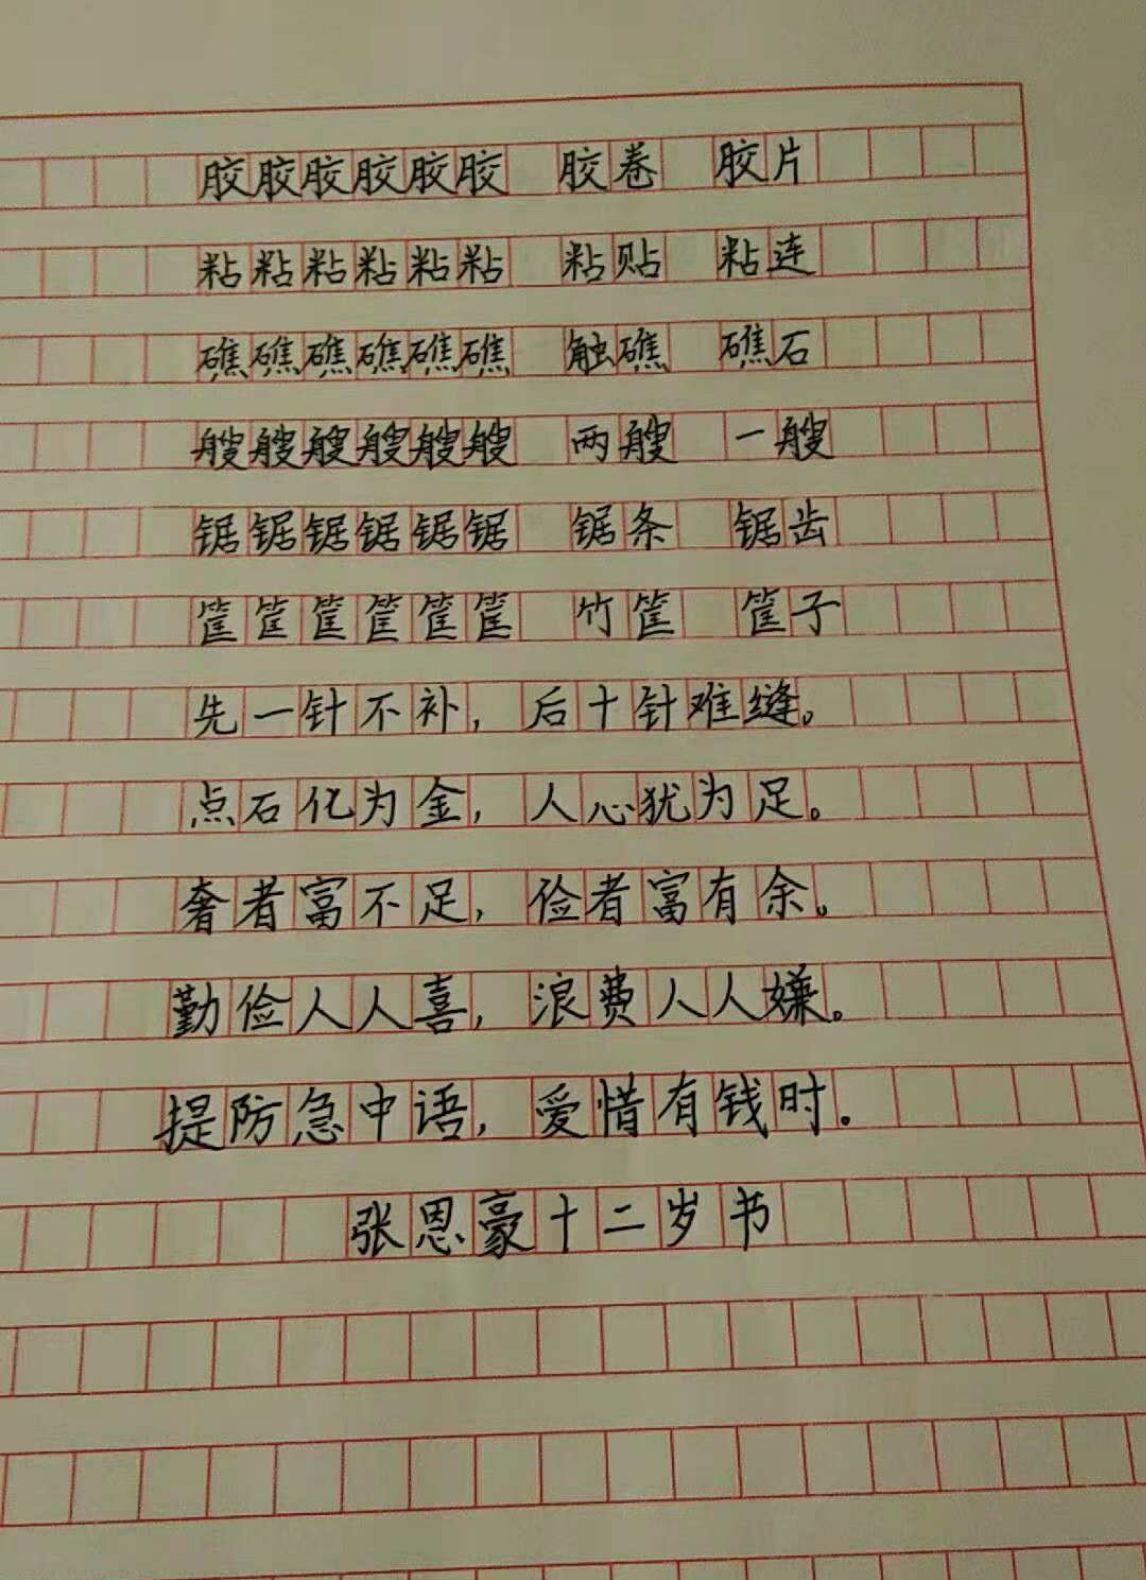 胶胶胶胶胶胶 胶卷 胶片
粘粘粘粘粘粘 粘贴 粘连
礁礁礁礁礁礁 触礁 礁石
艘艘艘艘艘艘 两艘 一艘
锯锯锯锯锯锯 锯条 锯齿
筐筐筐筐筐筐 竹筐 筐子
先一针不补，后十针难缝。
点石化为金，人心犹为足。
奢者富不足，俭者富有余。
勤俭人人喜，浪费人人嫌。
提防急中语，爱惜有钱时。
张恩豪十二岁书